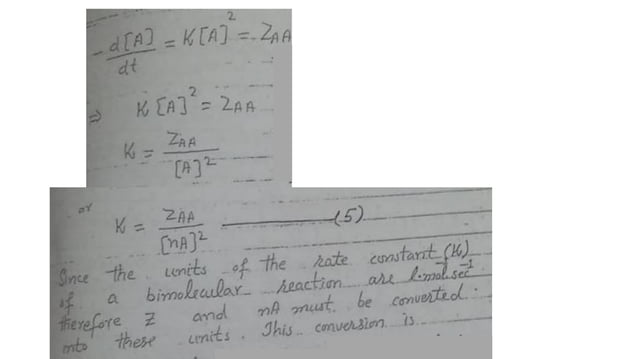 - d[A]/dt = K[A]² = ZAA
⇒ K[A]² = ZAA
K = ZAA/[A]²
or K = ZAA/[nA]² ——— (5)
Since the units of the rate constant (K)
of a bimolecular reaction are l·mol⁻¹sec⁻¹
therefore Z and nA must be converted
into these units. This conversion is